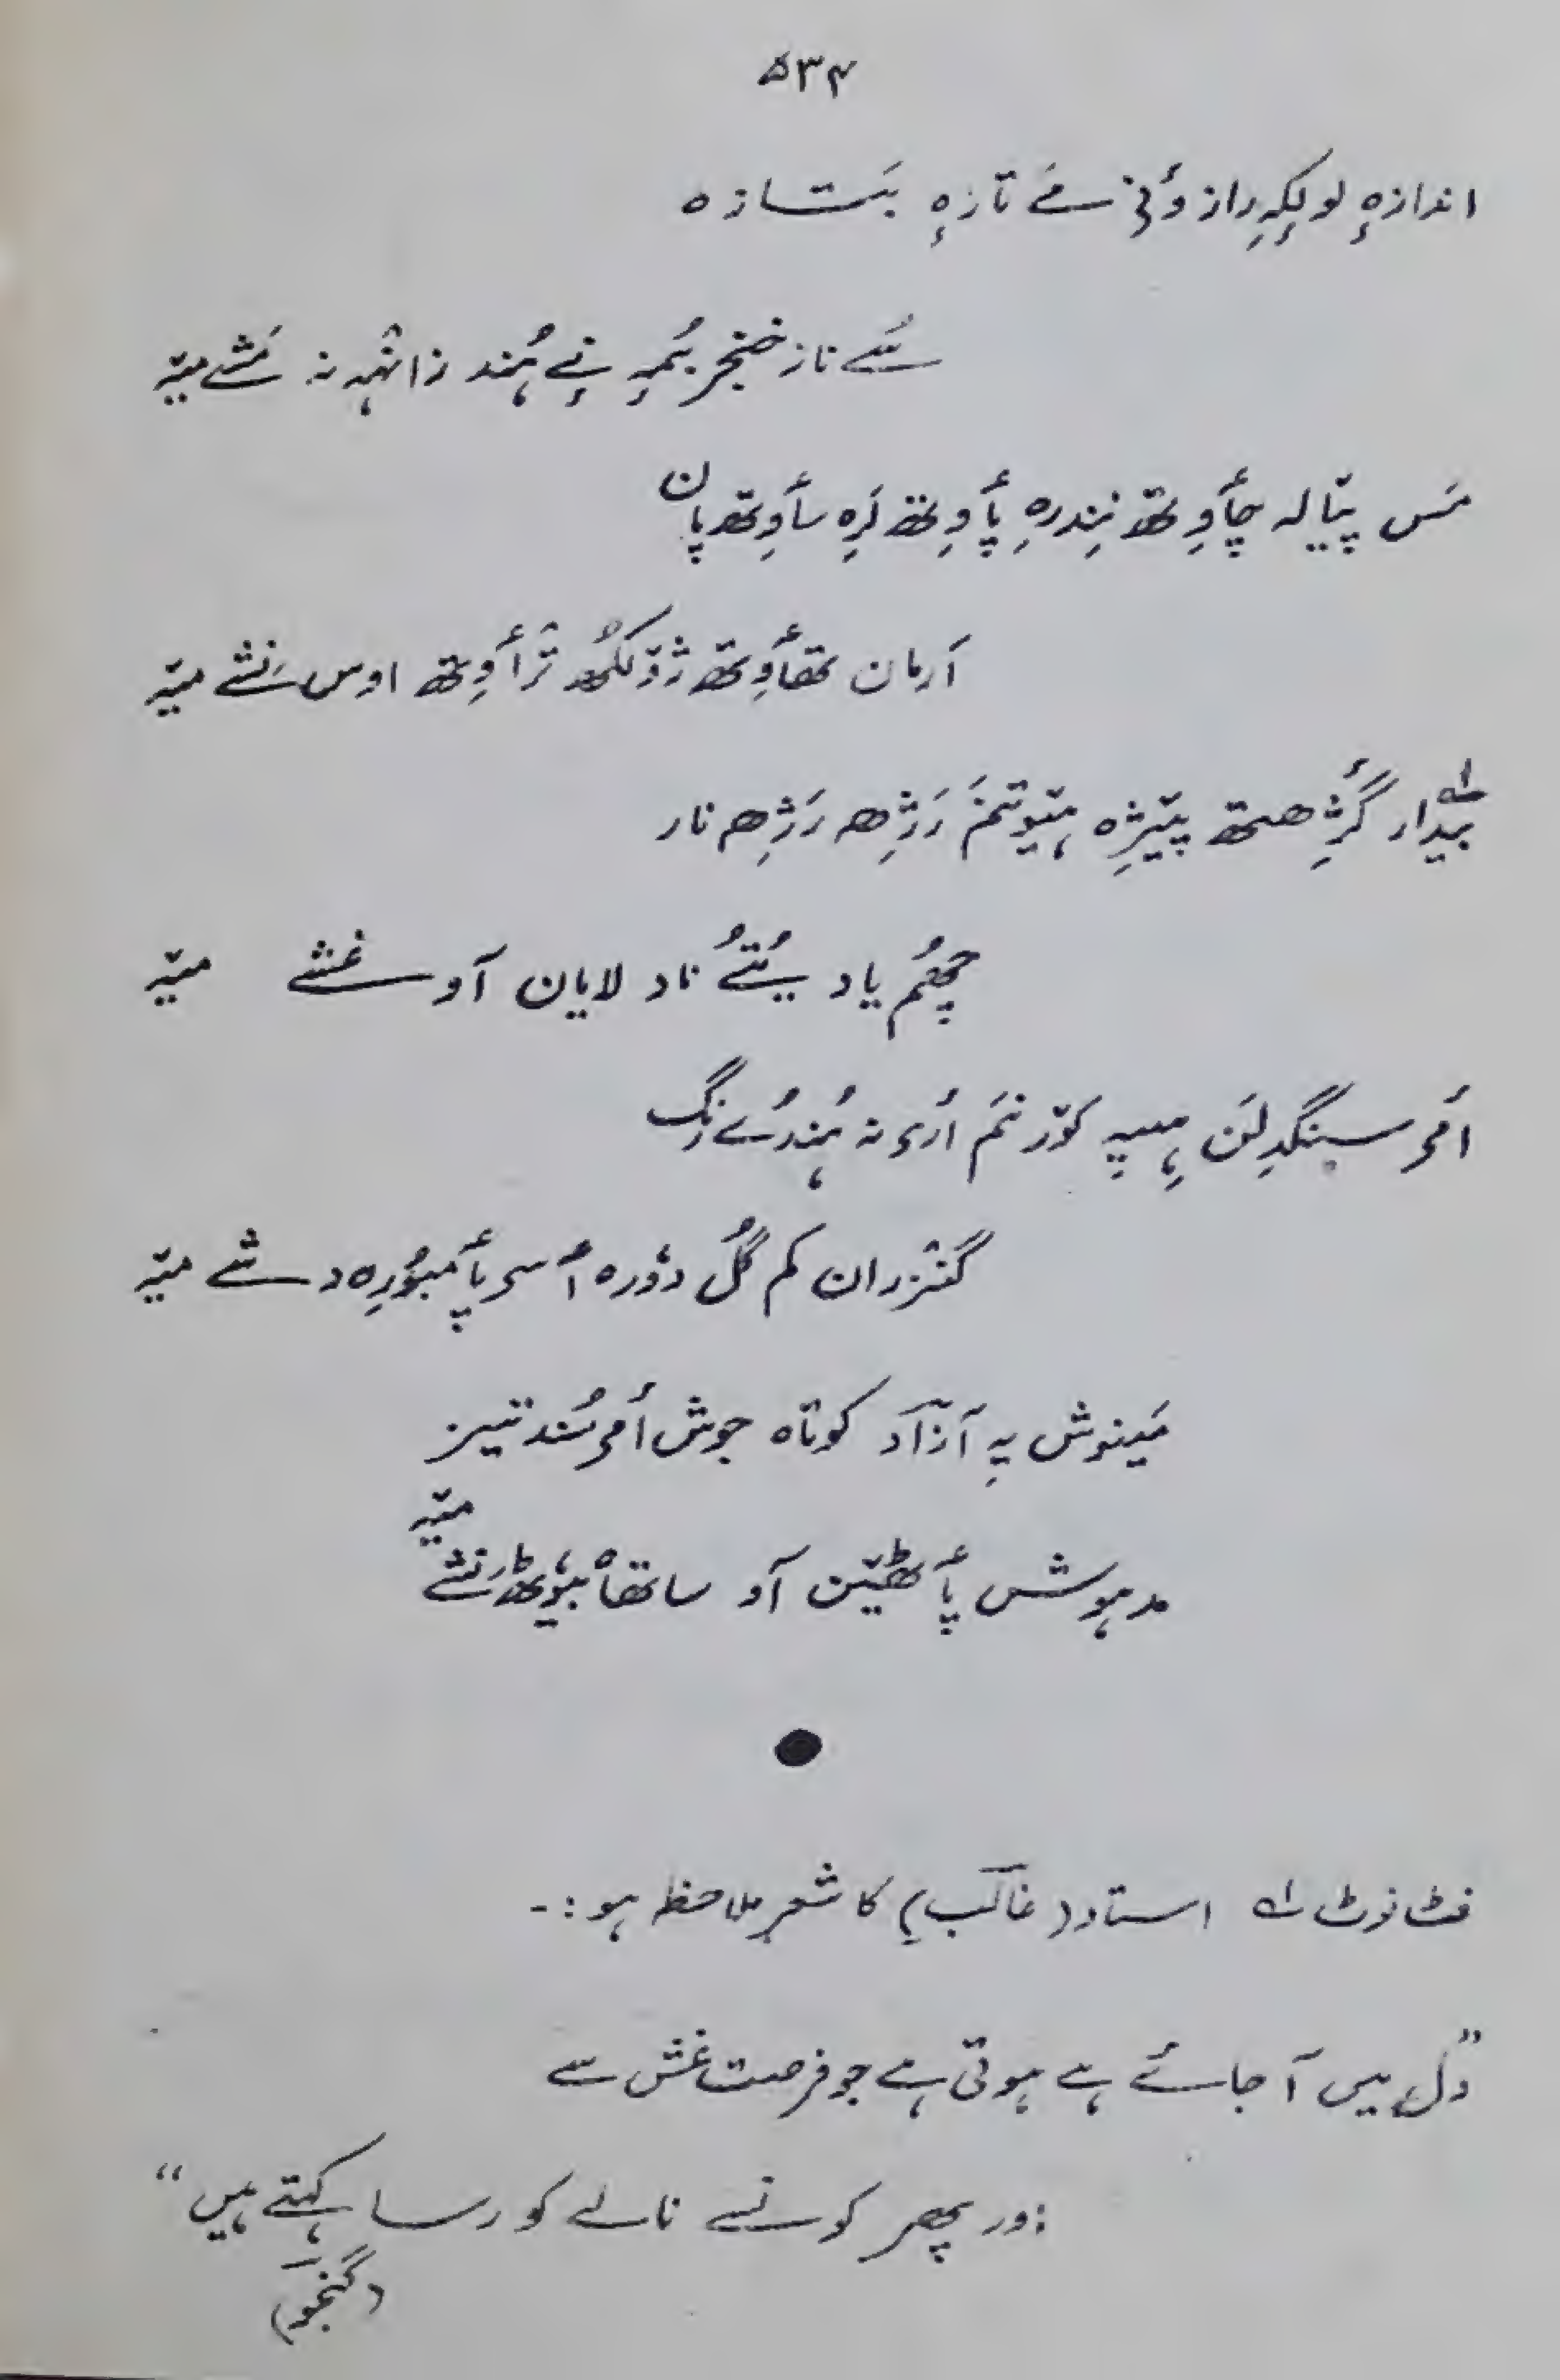 ۵۳۴
اندازہٕ لولِکہِ راز وٲنۍ سے تازہٕ بتازہ
سُے ناز خنجر بُمہِ نِے ہُند زانٛہہ نہ مَشے میٚہ
مَس پیٚالہ چٲوِتھ نِندرِہ پٲوِتھ لَرِہ سٲوِتھ پان
اَرمان تھٲوِتھ ژوٚلکھُ ترٛٲوِتھ اوس نَشے میٚہ
بیدار گژِھتھ پیٚژِہ ہیٚوتنمَ رَژِھ رَژِھ نار
چھُم یاد یُتُے ناد لایان آو غشے میٚہ
اَمۍ سنگدِلَن ہِیہِ کوٚرنَم اَرۍ نہ ہُندُے رنگ
گنٛزران کم گُل دوٗرہ اُسۍ پٲمبوٗرِہ دشے میٚہ
مَینوش یہِ آزاد کوتاہ جوش اَمۍ سُند تیز
مدہوش پٲٹھیٚن آو ساتھاہ بیوٗٹھ نَشے میٚہ
فٹ نوٹ ۱؎ استاد (غالب) کا شعر ملاحظہ ہو :-
”دل میں آ جائے ہے ہوتی ہے جو فرصت غش سے
اور پھر کونسے نالے کو رسا کہتے ہیں“
(گنجو)